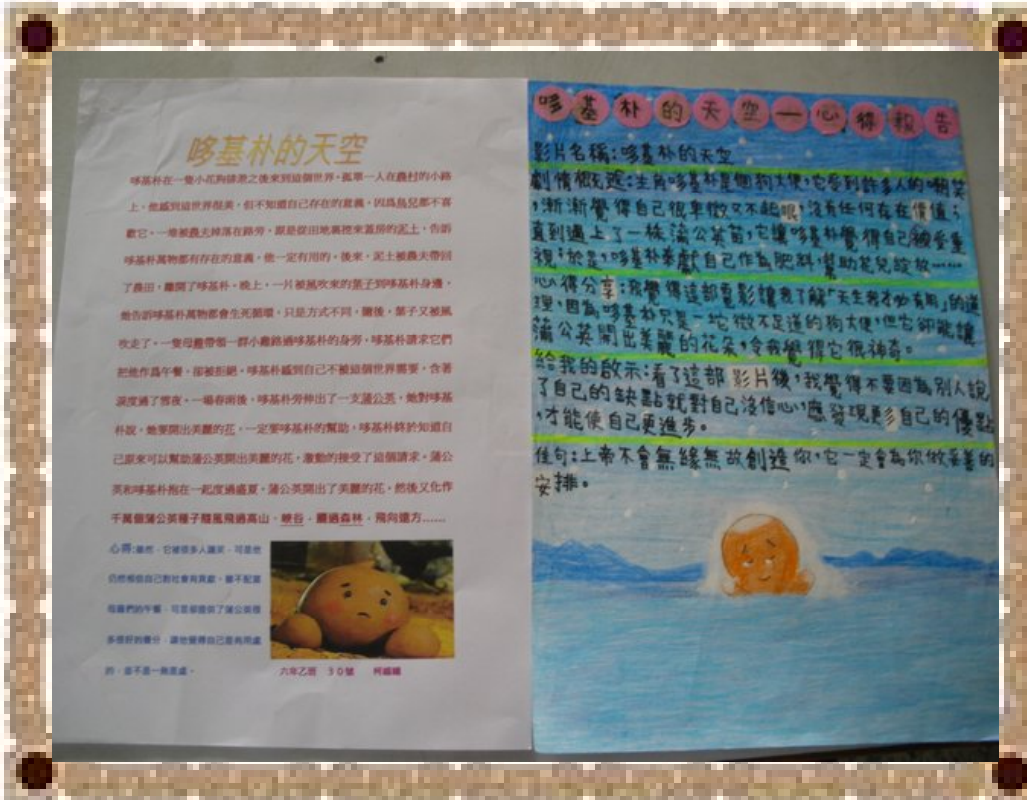 哆基朴的天空
哆基朴在一隻小花狗排泄之後來到這個世界。孤單一人在農村的小路
上。他感到這世界很美,但不知道自己存在的意義。因為鳥兒都不喜
歡它。一堆被農夫掉落在路旁,原是從田地裏挖來蓋房的泥土,告訴
哆基朴萬物都有存在的意義,他一定有用的。後來,泥土被農夫帶回
了農田,離開了哆基朴。晚上,一片被風吹來的葉子到哆基朴身邊,
她告訴哆基朴萬物都會生死循環,只是方式不同,隨後,葉子又被風
吹走了。一隻母雞帶領一群小雞路過哆基朴的身旁。哆基朴請求它們
把他作為午餐,卻被拒絕。哆基朴感到自己不被這個世界需要。含著
淚度過了雪夜。一場春雨後,哆基朴旁伸出了一支蒲公英,她對哆基
朴說,她要開出美麗的花,一定要哆基朴的幫助,哆基朴終於知道自
己原來可以幫助蒲公英開出美麗的花。激動的接受了這個請求。蒲公
英和哆基朴抱在一起度過盛夏。蒲公英開出了美麗的花。然後又化作
千萬個蒲公英種子隨風飛過高山,峽谷,飄過森林,飛向遠方……
心得:雖然,它被很多人譏笑,可是他
仍然相信自己對社會有貢獻。雖不配當
母雞們的午餐,可是卻提供了蒲公英很
多很好的養分,讓他覺得自己是有用處
的,並不是一無是處。
六年乙班 30號
哆基朴的天空一心得報告
影片名稱:哆基朴的天空
劇情概述:主角哆基朴是個狗大便,它受到許多人的嘲笑
,漸漸覺得自己很卑微又不起眼,沒有任何存在價值;
直到遇上了一株蒲公英苗,它讓哆基朴覺得自己被受重
視;於是,哆基朴奉獻自己作為肥料,幫助花兒綻放……
心得分享:我覺得這部電影讓我了解「天生我才必有用」的道
理,因為哆基朴只是一坨微不足道的狗大便,但它卻能讓
蒲公英開出美麗的花朵,令我覺得它很神奇。
給我的啟示:看了這部影片後,我覺得不要因為別人說
了自己的缺點就對自己沒信心,應發現更多自己的優點
,才能使自己更進步。
佳句:上帝不會無緣無故創造你,它一定會為你做妥善的
安排。